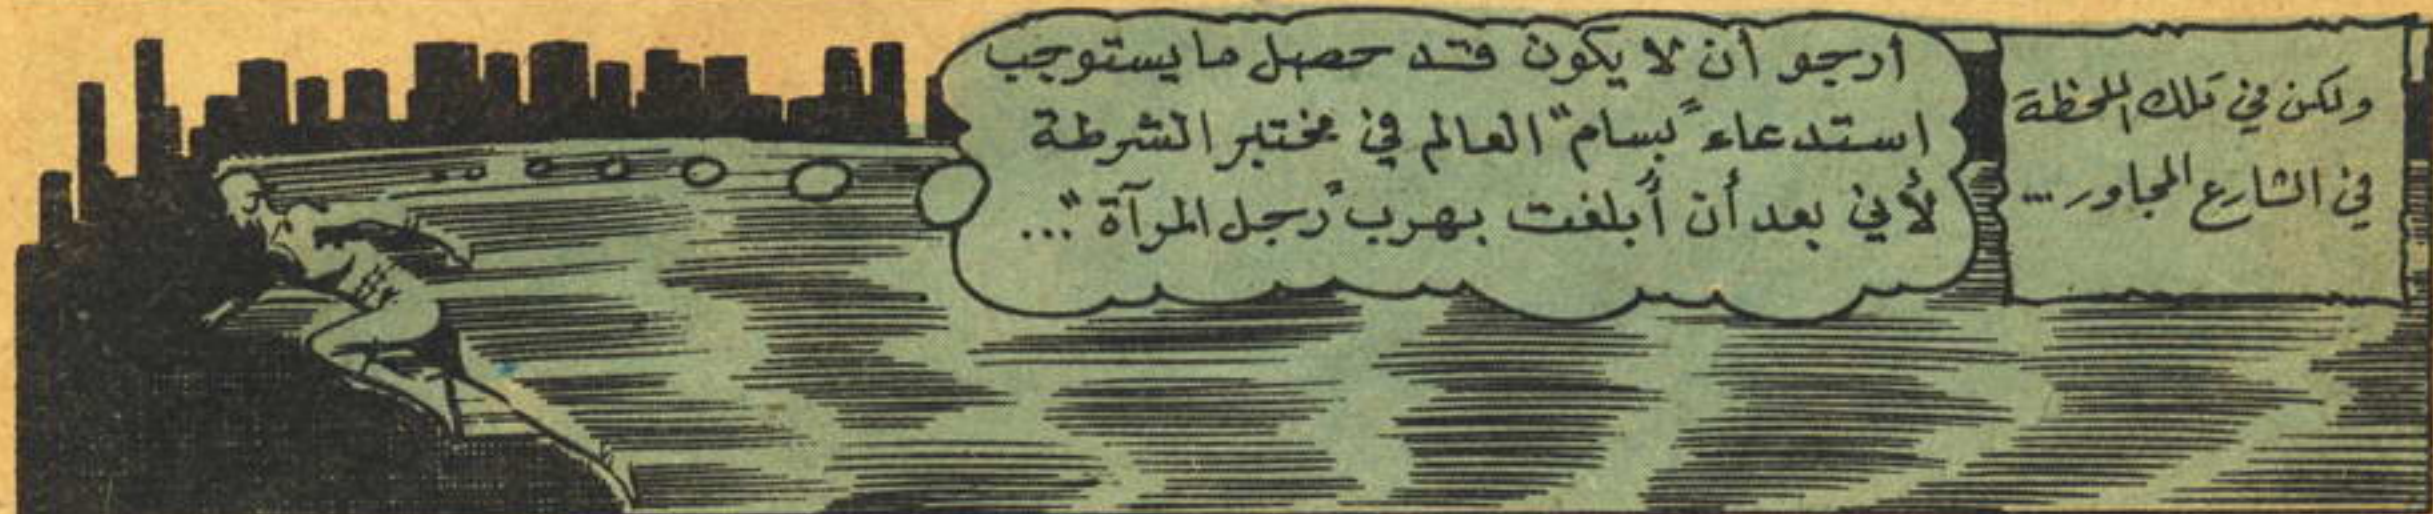 ولكن في تلك اللحظة
في الشارع المجاور...
أرجو أن لا يكون قد حصل ما يستوجب
استدعاء "بسام" العالم في مختبر الشرطة
لأني بعد أن أبلغت بهرب "رجل المرآة"...